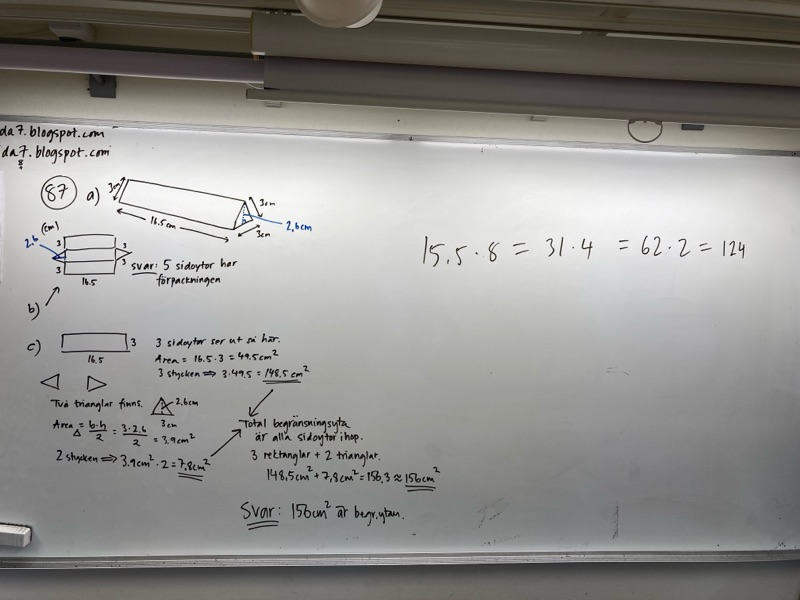 da7.blogspot.com
da7.blogspot.com
87 a) 3cm 16.5cm 3cm 3cm 2,6cm
(cm)
2.6 3 3 3 3
16.5
svar: 5 sidoytor har
förpackningen
b)
c) 3 16.5
3 sidoytor ser ut så här.
Area = 16.5·3 = 49.5cm²
3 stycken ⇒ 3·49.5 = 148,5 cm²
Två trianglar finns. 2,6cm 3cm
Area△ = b·h/2 = 3·2.6/2 = 3.9cm²
2 stycken ⇒ 3.9cm²·2 = 7,8cm²
Total begränsningsyta
är alla sidoytor ihop.
3 rektanglar + 2 trianglar.
148,5cm² + 7,8cm² = 156,3 ≈ 156cm²
Svar: 156cm² är begr.ytan.
15,5·8 = 31·4 = 62·2 = 124